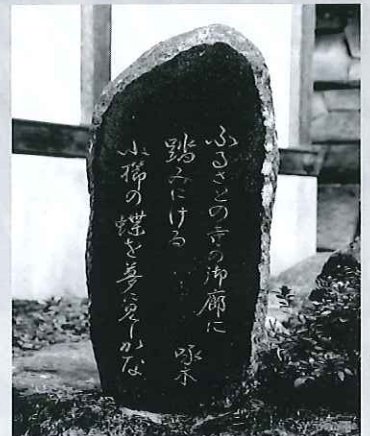 ふるさとの寺の御廊に
踏みにける
小櫛の蝶を夢に見しかな
啄木